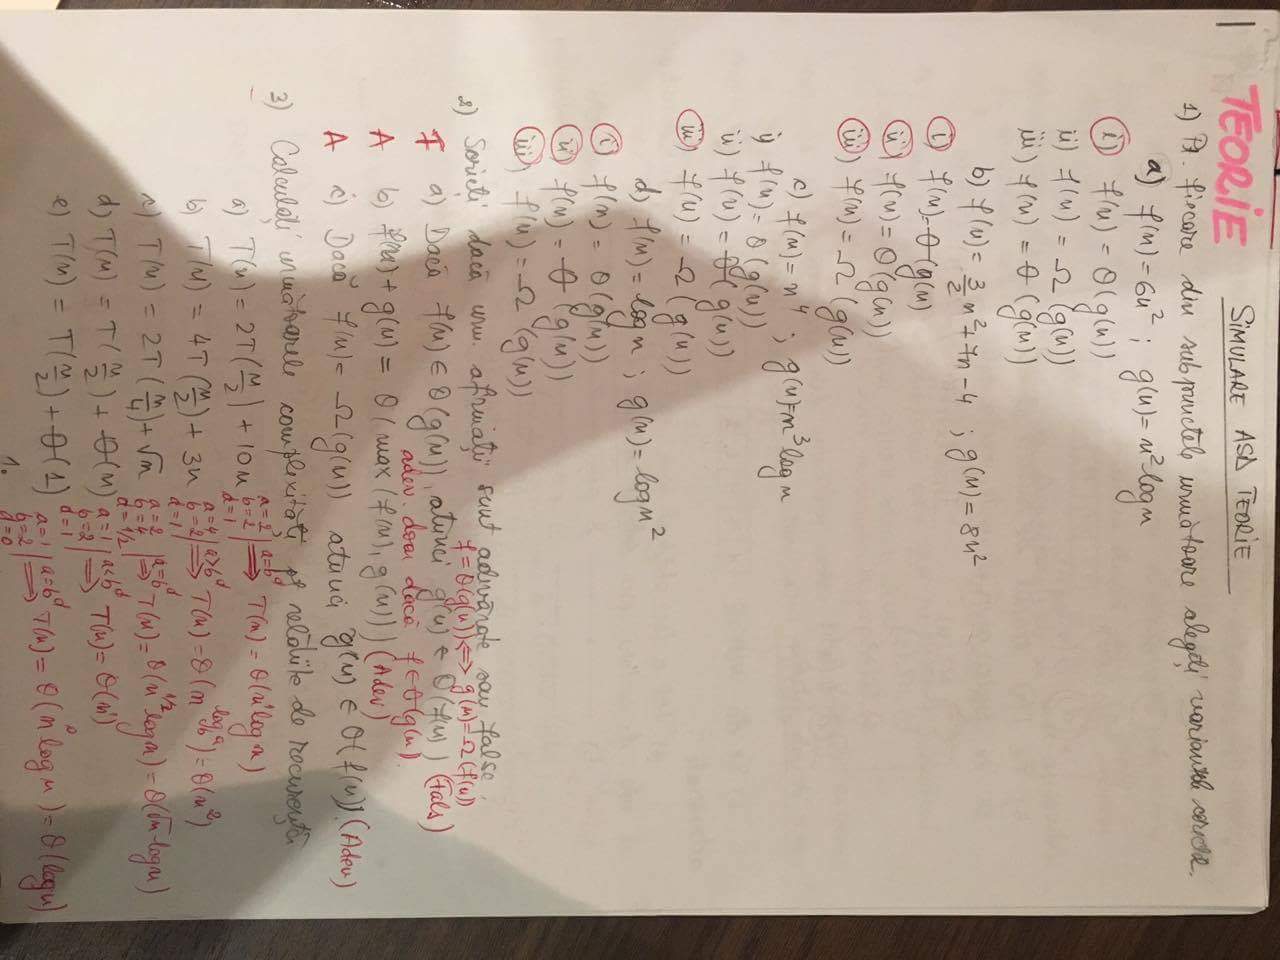 TEORIE
SIMULARE ASD TEORIE
1) Pt. fiecare din subpunctele următoare alegeți variantele corecte.
a) f(n) = 6n² ; g(n) = n² log n
i) f(n) = O(g(n))
ii) f(n) = Ω (g(n))
iii) f(n) = Θ (g(n))
b) f(n) = 3/2 n² + 7n - 4 ; g(n) = 8n²
i) f(n) = Θ(g(n)
ii) f(n) = O(g(n))
iii) f(n) = Ω (g(n))
c) f(n) = n⁴ ; g(n) = n³ log n
i) f(n) = O(g(n))
ii) f(n) = Θ(g(n))
iii) f(n) = Ω(g(n))
d) f(n) = log n ; g(n) = log n²
i) f(n) = O(g(n))
ii) f(n) = Θ (g(n))
iii) f(n) = Ω (g(n))
2) Scrieți dacă urm. afirmații sunt adevărate sau false.
f = O(g(n)) ⟺ g(n) = Ω(f(n))
F a) Dacă f(n) ∈ O(g(n)), atunci g(n) ∈ O(f(n)) (Fals)
adev. doar dacă f ∈ Θ(g(n).
A b) f(n) + g(n) = O(max(f(n), g(n))) (Adev)
A c) Dacă f(n) = Ω(g(n)) atunci g(n) ∈ O(f(n)). (Adev)
3) Calculați următoarele complexități pt relațiile de recurență
a) T(n) = 2T(n/2) + 10n a=2 b=2 d=1 | a=b^d ⟹ T(n) = O(n¹ log n)
b) T(n) = 4T(n/2) + 3n a=4 b=2 d=1 | a>b^d ⟹ T(n) = O(n^(log_b a)) = O(n²)
c) T(n) = 2T(n/4) + √n a=2 b=4 d=1/2 | a=b^d ⟹ T(n) = O(n^(1/2) log n) = O(√n·log n)
d) T(n) = T(n/2) + Θ(n) a=1 b=2 d=1 | a<b^d ⟹ T(n) = O(n¹)
e) T(n) = T(n/2) + Θ(1) a=1 b=2 d=0 | a=b^d ⟹ T(n) = O(n⁰ log n) = O(log n)
1.